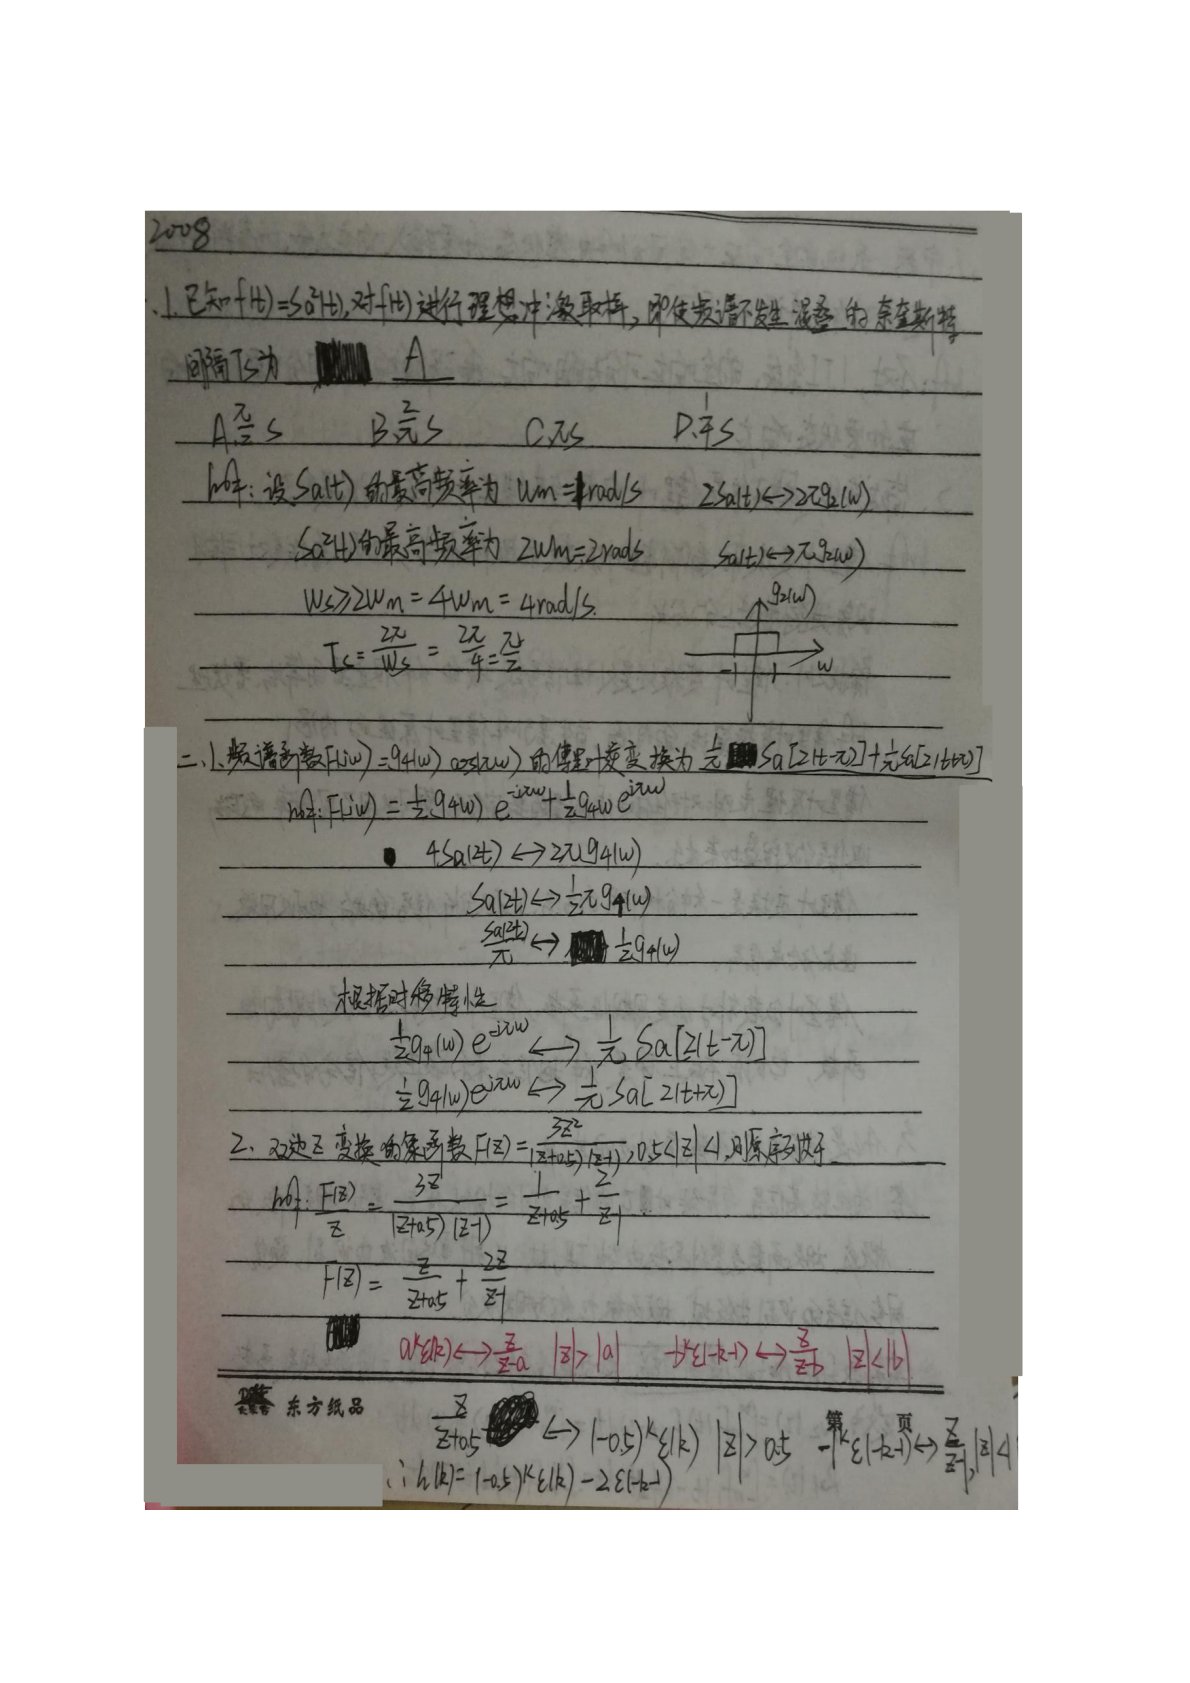 2008
一.1.已知f(t)=Sa²(t),对f(t)进行理想冲激取样,即使频谱不发生混叠的奈奎斯特
间隔Ts为 A
A.π/2 s B.2/π s C.πs D.1/4 s
解:设Sa(t)的最高频率为 ωm=1rad/s 2Sa(t)↔2πg₂(ω)
Sa²(t)的最高频率为 2ωm=2rad/s Sa(t)↔πg₂(ω)
ωs≥2ωm=4ωm=4rad/s. g₂(ω)
Ts=2π/ωs=2π/4=π/2 -1 1 ω
二、1.频谱函数F(jω)=g₄(ω)cos(πω)的傅里叶逆变换为 1/π Sa[2(t-π)]+1/π Sa[2(t+π)]
解:F(jω)=1/2 g₄(ω)e^(-jπω)+1/2 g₄(ω)e^(jπω)
4Sa(2t)↔2πg₄(ω)
Sa(2t)↔1/2 πg₄(ω)
Sa(2t)/π ↔ 1/2 g₄(ω)
根据时移特性
1/2 g₄(ω)e^(-jπω) ↔ 1/π Sa[2(t-π)]
1/2 g₄(ω)e^(jπω) ↔ 1/π Sa[2(t+π)]
2、双边Z变换的象函数F(z)=3z²/(z+0.5)(z-1),0.5<|z|<1,则原序列f(k)=
解:F(z)/z=3z/(z+0.5)(z-1)=1/(z+0.5)+2/(z-1)
F(z)=z/(z+0.5)+2z/(z-1)
a^kε(k)↔z/(z-a) |z|>|a| -b^kε(-k-1)↔z/(z-b) |z|<|b|
东方纸品 第 页
z/(z+0.5) ↔(-0.5)^kε(k) |z|>0.5 -1^kε(-k-1)↔z/(z-1),|z|<1
∴h(k)=(-0.5)^kε(k)-2ε(-k-1)